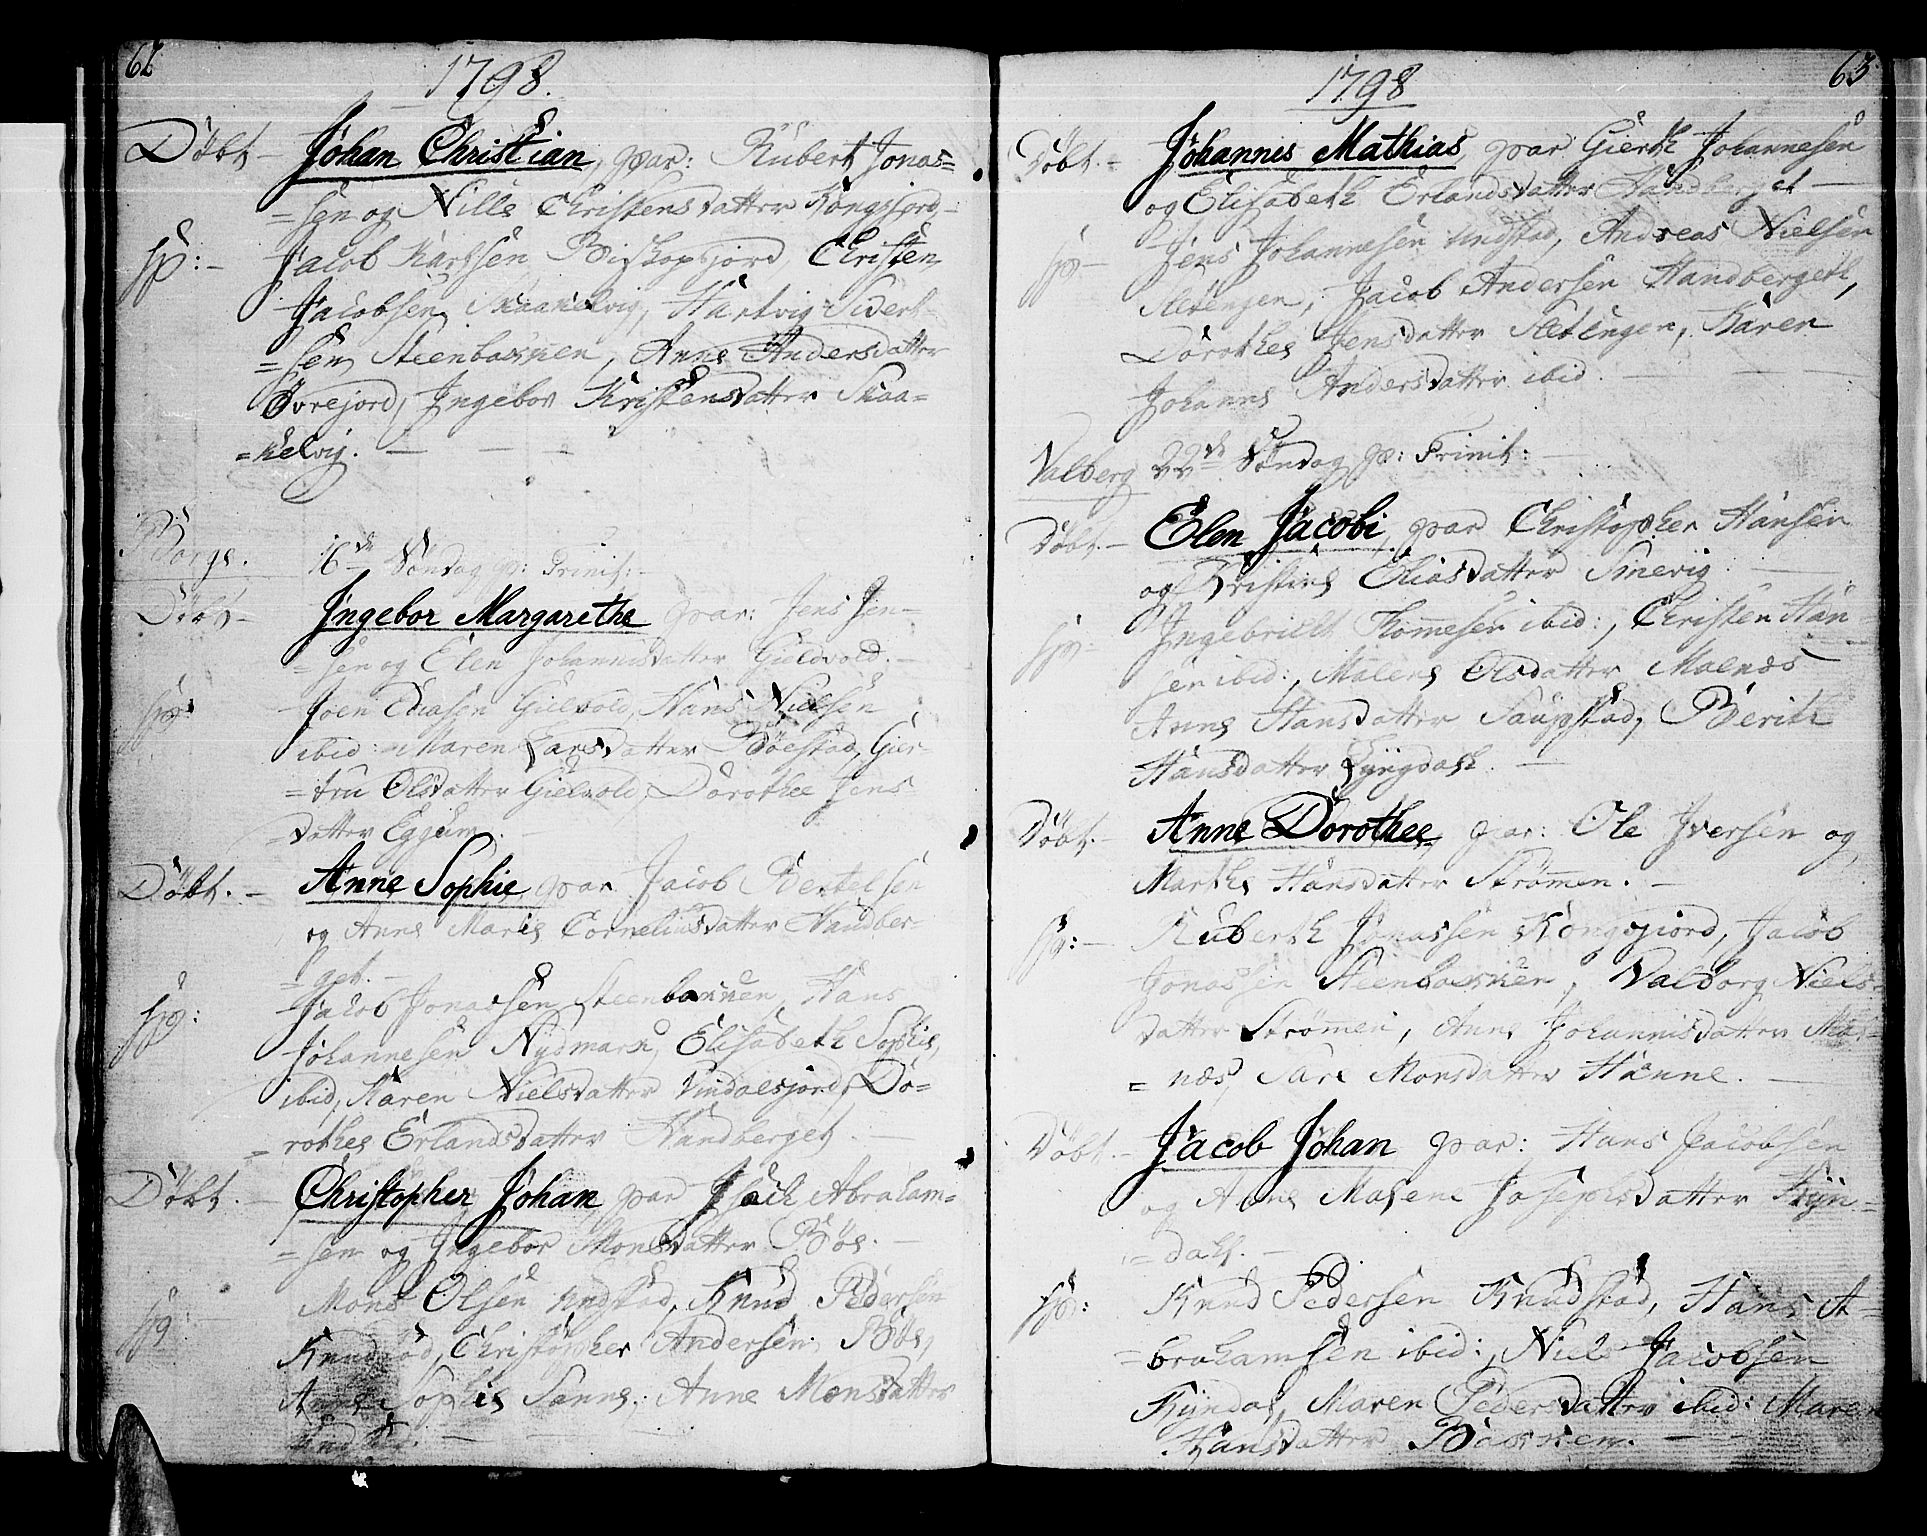 62
1798.
Döbt - Johan Christian, par: Rubert Jonas-
=sen og Nille Christensdatter Kongsjord,-
sp: - Jacob Kartsen Biskopsjord, Christen
Jacobsen Skaankelvig, Hartvig Sivert-
=sen Steenbaxnen, Anne Andersdatter
Øvrejord, Ingebor Kristensdatter Skaa-
=kelvig. -
Borge. 16de Söndag p: Trinit: -
Döbt - Ingebor Margarethe par: Jens Jen-
=sen og Elen Johannisdatter Gieldvold. -
sp: Joen Eliasen Gielvold, Hans Nielsen
ibid: Maren Larsdatter Böestad, Gier-
=tru Olsdatter Gielvold, Dorothee Jens
datter Eggum. -
Döbt. - Anne Sophie, par Jacob Bertelsen
og Anne Marie Corneliusdatter Handber-
=get. -
sp: Jakob Jonassen Steenbaxnen, Hans
Johannesen Nydmark, Elisabeth Sophie,
ibid, Karen Nielsdatter Vindalsjord, Do-
=rothea Erlandsdatter Handberget. -
Döbt. - Christopher Johan, par Isach Abraham-
=sen og Ingebor Monsdatter Böe. -
sp: Mons Olsen Undstad, Knud Pedersen
Knudstad, Christopher Andersen Böe,
Anne Sophie Sanne, Anne Monsdatter
63.
1798
Döbt. - Johannis Mathias, par Gierth Johannesen
og Elisabeth Erlandsdatter Handberget -
sp - Jens Johannesen Undstad, Andreas Nielsen
Sletingen, Jacob Andersen Handbergeth,
Dorothea Jensdatter Sletingen, Karen
Johanne Andersdatter ibid. -
Valberg 22de Söndag p: Trinit: -
Döbt. - Elen Jacobi, par Christopher Hansen
og Kristine Eliasdatter Smevig. -
sp: Ingebrigt Tommesen ibid:, Christen Han-
sen ibid:, Malene Olsdatter Malnæs
Anne Hansdatter Saupstad, Berith
Hansdatter Lyngdahl. -
Döbt. - Anne Dorothee, par: Ole Iversen og
Marthe Hansdatter Strömen. -
sp: - Ruberth Jonassen Kongsjord, Jacob
Jonassen Steenbaxnen, Valborg Niels-
datter Strömen, Anne Johannisdatter Mar-
=næs, Sare Monsdatter Hanne. -
Döbt. - Jacob Johan par: Hans Jacobsen
og Anne Malene Josepsdatter Kyn-
=dahl. -
sp: Knud Pedersen Knudstad, Hans A-
=brahamsen ibid:, Niels Jacobsen
Kyndal, Maren Pedersdatter ibid: Maren
Hansdatter Baxnen. - -